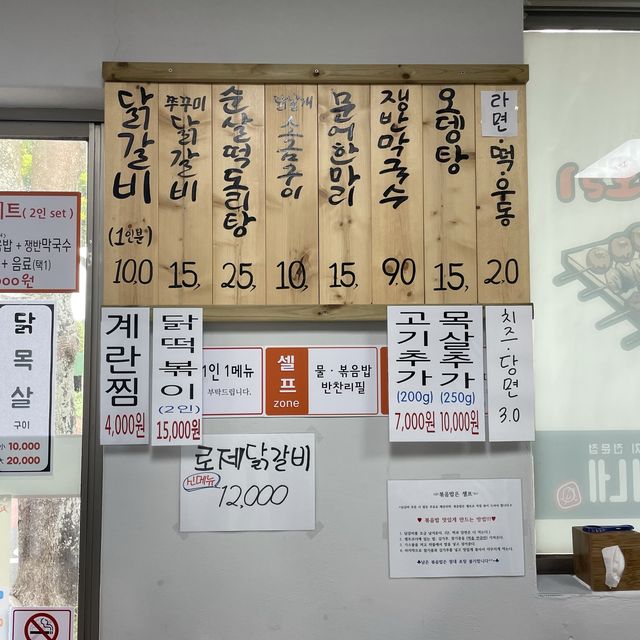 닭갈비
(1인분)
10.0
쭈꾸미
닭갈비
15,
순살떡도리탕
25,
닭날개
소금구이
10,
문어한마리
15,
쟁반막국수
9.0
오뎅탕
15,
라면·떡·우동
2.0
이트( 2인 set )
음밥 + 쟁반막국수
+ 음료(택1)
00원
닭목살
구이
小 10,000
大 20,000
계란찜
4,000원
닭떡볶이
(2인)
15,000원
1인 1메뉴
부탁드립니다.
셀프
zone
물 · 볶음밥
반찬리필
고기추가
(200g)
7,000원
목살추가
(250g)
10,000원
치즈·당면
3.0
로제닭갈비
신메뉴
12,000
볶음밥은 셀프
♥ 볶음밥 맛있게 만드는 방법!! ♥